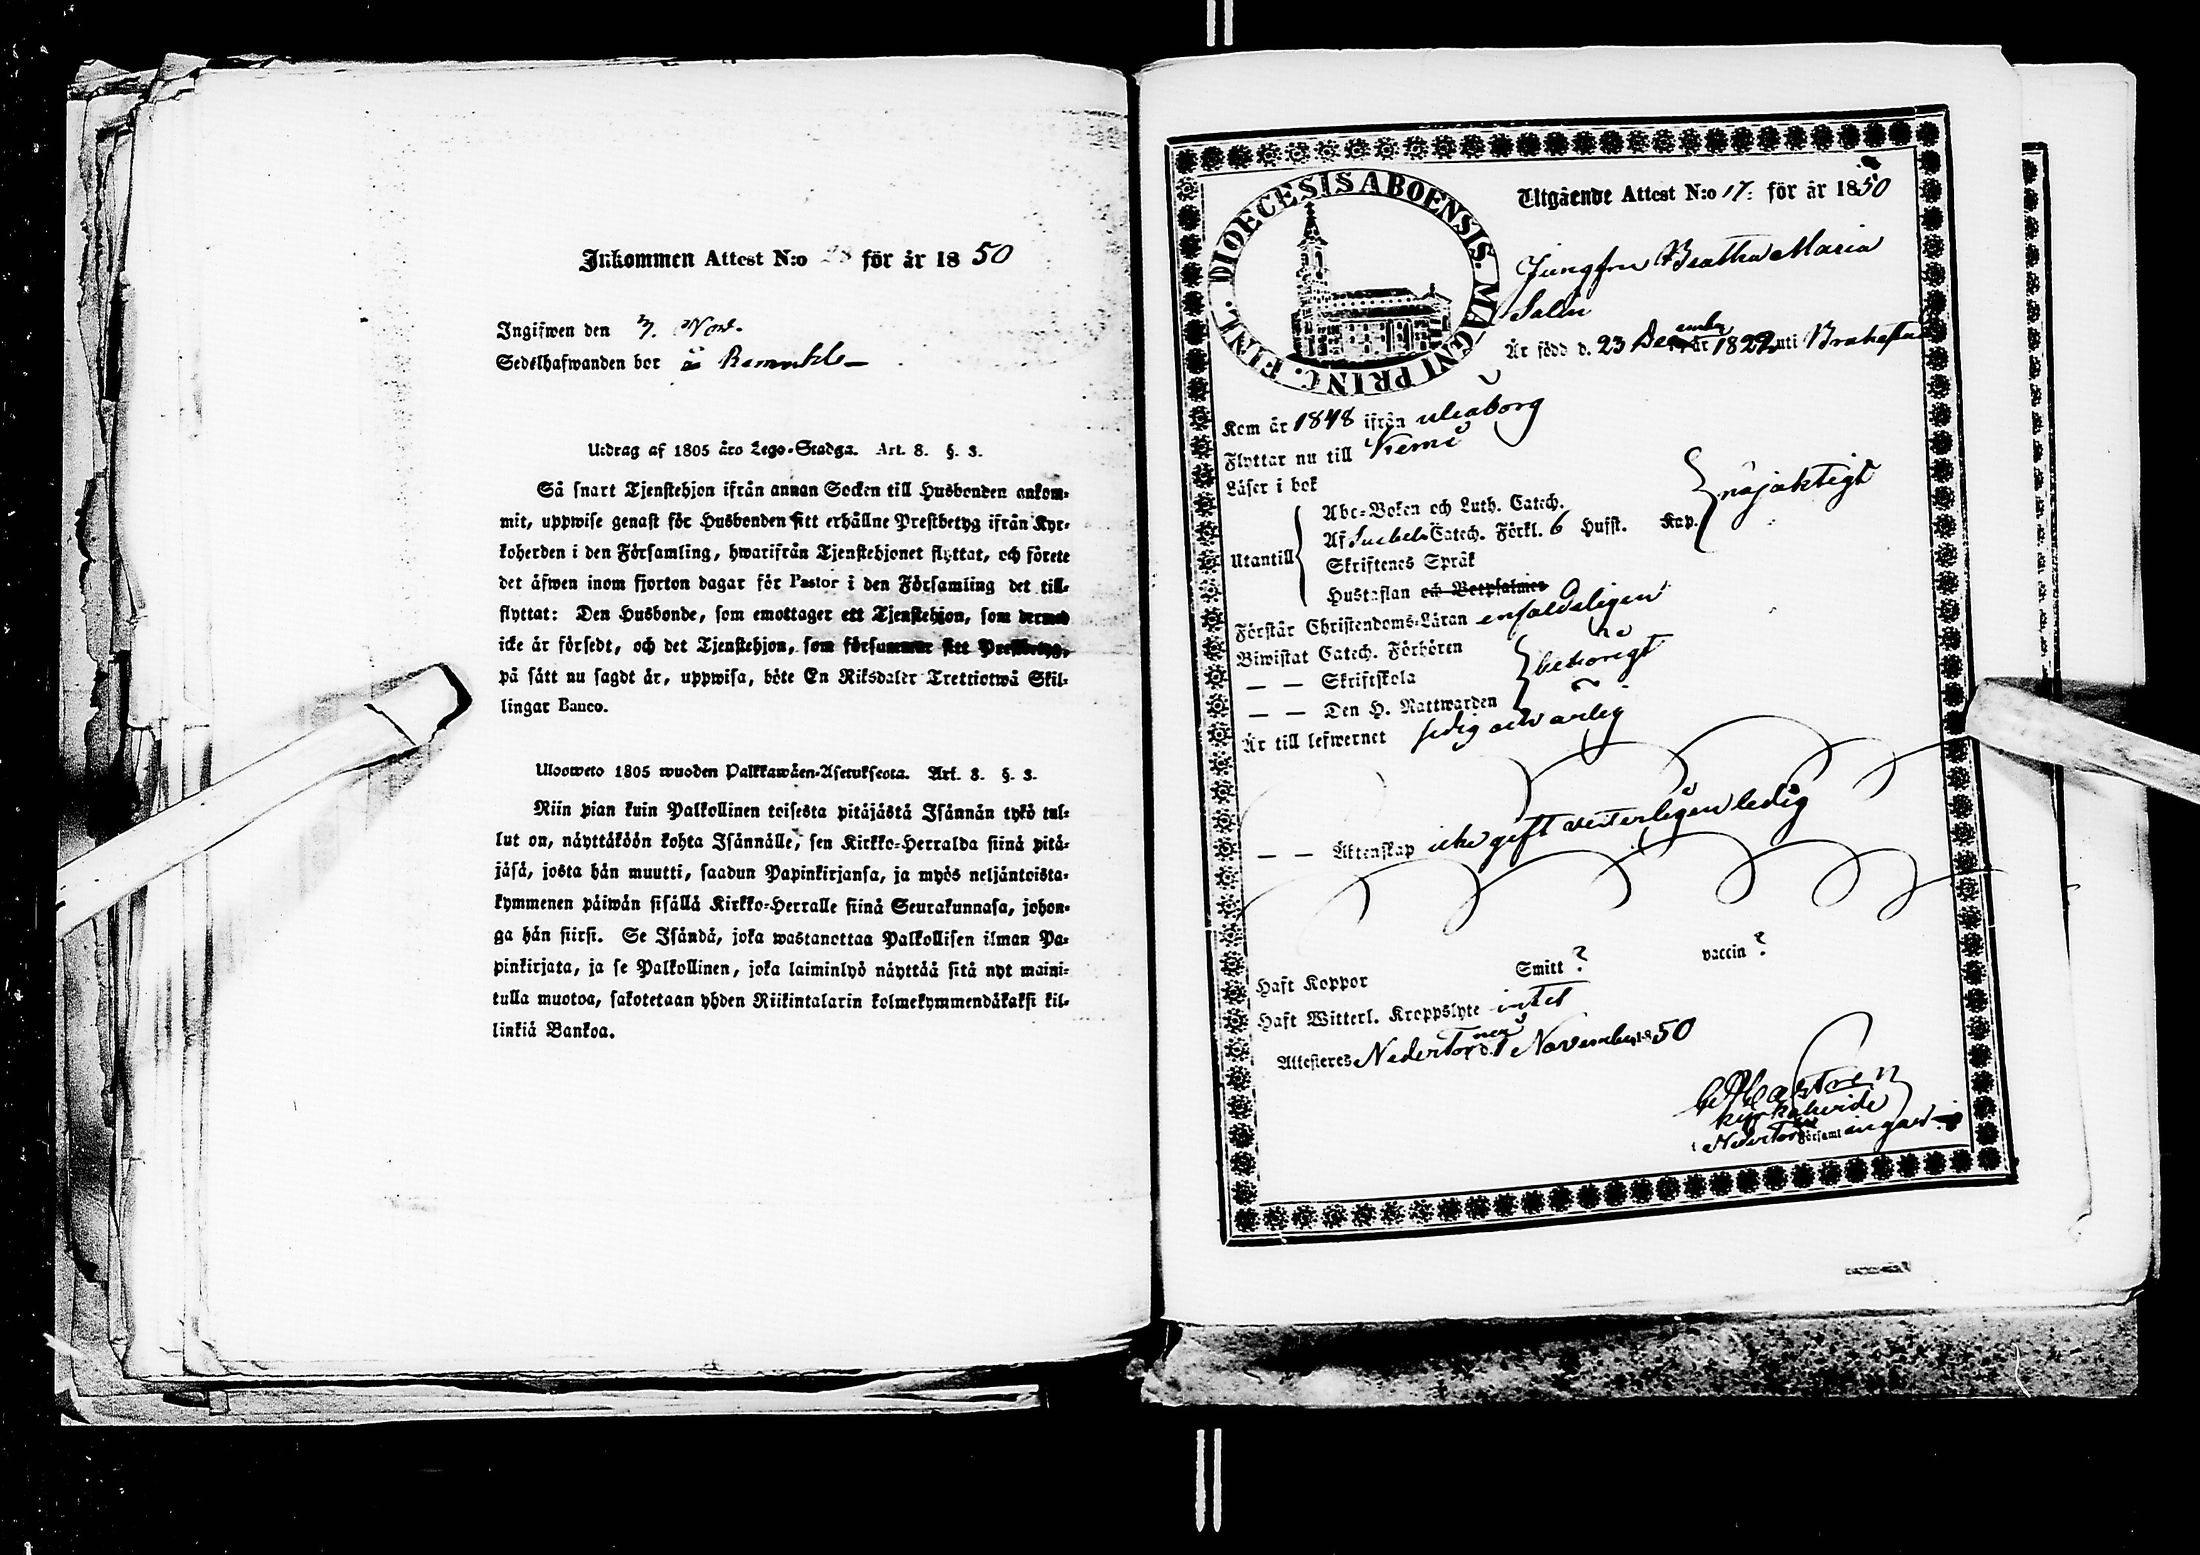 Inkommen Attest N:o 28 för år 1850
Ingifwen den 7. Nov.
Sedelhafwanden bor å
Utdrag af 1805 års Lego-Stadga. Art. 8. §. 3.
Så snart Tjenstehjon ifrån annan Socken till Husbonden ankom-
mit, uppwise genast för Husbonden sitt erhållne Prestbetyg ifrån Kyr-
koherden i den Församling, hwarifrån Tjenstehjonet flyttat, och förete
det äfwen inom fjorton dagar för Pastor i den Församling det till-
flyttat: Den Husbonde, som emottager ett Tjenstehjon, som dermed
icke är försedt, och det Tjenstehjon, som försummar sitt Prestbetyg,
på sätt nu sagdt är, uppwisa, böte En Riksdaler Trettiotwå Skil-
lingar Banco.
Ulosweto 1805 wuoden Palkkawäen-Asetuksesta. Art. 8. §. 3.
Niin pian kuin Palkollinen toisesta pitäjästä Isännän tykö tul-
lut on, näyttäköön kohta Isännälle, sen Kirkko-Herralda siinä pitä-
jäsä, josta hän muutti, saadun Papinkirjansa, ja myös neljäntoista-
kymmenen päiwän sisällä Kirkko-Herralle siinä Seurakunnasa, johon-
ga hän siirsi. Se Isändä, joka wastanottaa Palkollisen ilman Pa-
pinkirjata, ja se Palkollinen, joka laiminlyö näyttää sitä nyt maini-
tulla muotoa, sakotetaan yhden Riikintalarin kolmekymmendäkaksi kil-
linkiä Bankoa.
DIOECESIS ABOENSIS. MAGNI PRINC. FINL.
Utgående Attest N:o 17. för år 1850
Jungfru Beatha Maria
Salin
Är född d. 23 December år 1822 uti Brahestad
Kom år 1848 ifrån Uleåborg
Flyttar nu till Kemi
Läser i bok
Abc-Boken och Luth. Catech.
Utantill Af Suebel. Catech. Förkl. 6 Hufst. Kap. nöjaktigt
Skriftenes Språk
Hustaflan och Botpsalmer
Förstår Christendoms-Läran enfaldeligen
Biwistat Catech. Förhören
— — Skriftskola behörigt
— — Den H. Nattwarden
Är till lefwernet sedig och ärlig
— — Äktenskap icke gift veterligen ledig
Haft Koppor Smitt? vaccin?
Haft Witterl. Kroppslyte intet
Attesteres Nedertorneå d. 1 November 1850
Castrén
Kyrkoherde
i Nedertorneå Församlingar